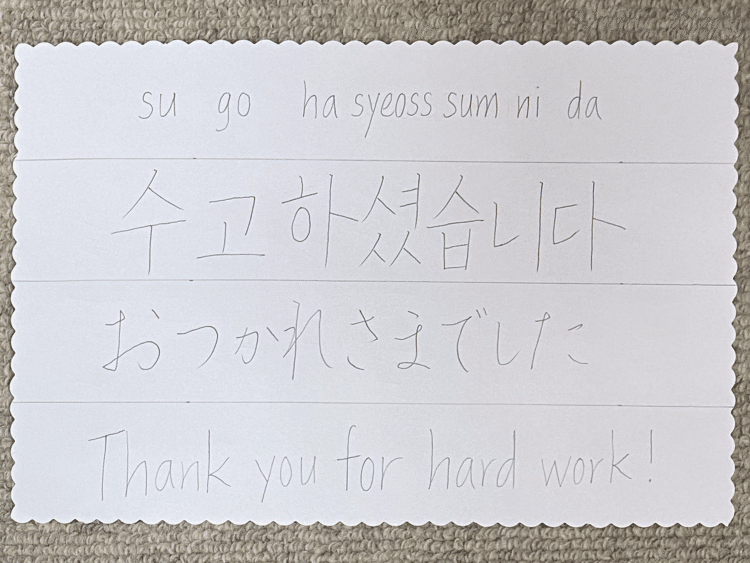 su go ha syeoss sum ni da
수고하셨습니다
おつかれさまでした
Thank you for hard work!